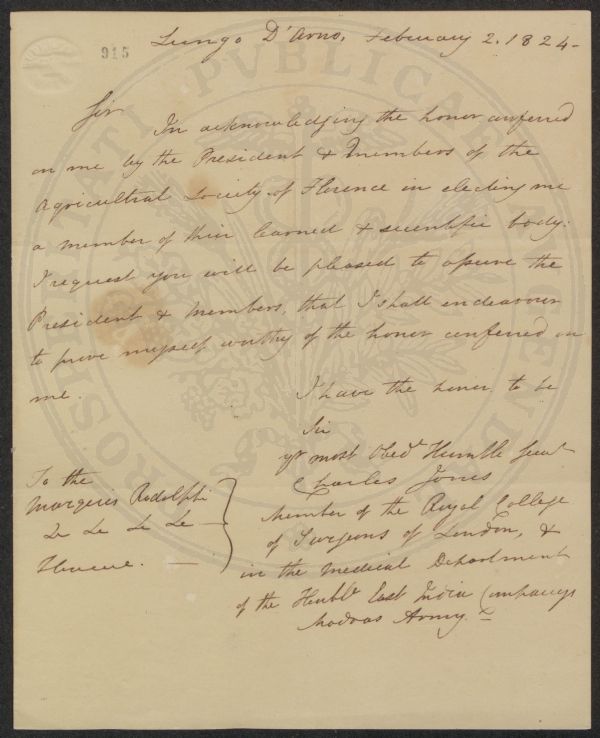 915
Lungo D'Arno, February 2. 1824-
Sir In acknowledging the honor conferred
on me by the President & Members of the
Agricultral Society of Florence in electing me
a member of their learned & scientific body:
I request you will be pleased to assure the
President & Members, that I shall endeavour
to prove myself worthy of the honor conferred on
me.
I have the honor to be
Sir
yr most Obedt Humble Servt
Charles Jones
Member of the Royal College
of Surgeons of London, &
in the Medical Department
of the Honble East India Companys
Madras Army.
To the
Marquis Ridolphi
&c &c &c &c
Florence.
PROSPERITATI PUBLICAE AUGENDAE